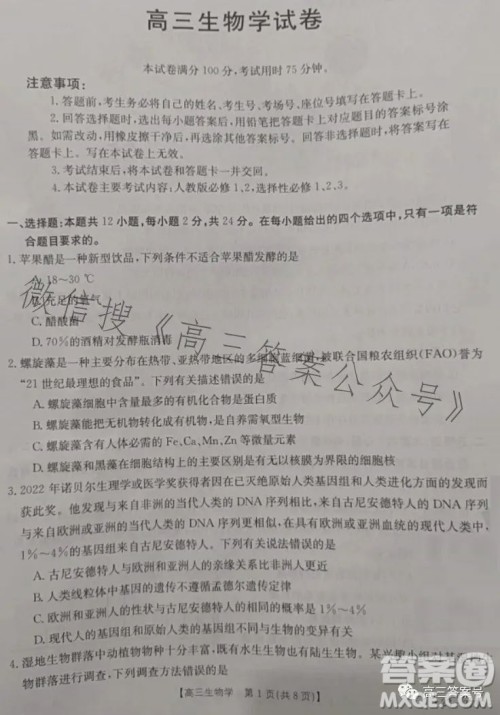 高三生物学试卷
本试卷满分100分,考试用时75分钟。
注意事项:
1.答题前,考生务必将自己的姓名、考生号、考场号、座位号填写在答题卡上。
2.回答选择题时,选出每小题答案后,用铅笔把答题卡上对应题目的答案标号涂
黑。如需改动,用橡皮擦干净后,再选涂其他答案标号。回答非选择题时,将答案写在
答题卡上。写在本试卷上无效。
3.考试结束后,将本试卷和答题卡一并交回。
4.本试卷主要考试内容:人教版必修1、2,选择性必修1、2、3。
一、选择题:本题共12小题,每小题2分,共24分。在每小题给出的四个选项中,只有一项是符
合题目要求的。
1.苹果醋是一种新型饮品,下列条件不适合苹果醋发酵的是
A.18~30 ℃
B.充足的氧气
C.醋酸菌
D.70%的酒精对发酵瓶消毒
2.螺旋藻是一种主要分布在热带、亚热带地区的多细胞蓝细菌,被联合国粮农组织(FAO)誉为
“21世纪最理想的食品”。下列有关描述错误的是
A.螺旋藻细胞中含量最多的有机化合物是蛋白质
B.螺旋藻能把无机物转化成有机物,是自养需氧型生物
C.螺旋藻含有人体必需的Fe、Ca、Mn、Zn等微量元素
D.螺旋藻和黑藻在细胞结构上的主要区别是有无以核膜为界限的细胞核
3.2022年诺贝尔生理学或医学奖获得者因在已灭绝原始人类基因组和人类进化方面的发现而
获此奖。他发现与来自非洲的当代人类的DNA序列相比,来自古尼安德特人的DNA序列
与来自欧洲或亚洲的当代人类的DNA序列更相似,在具有欧洲或亚洲血统的现代人类中,
1%~4%的基因组来自古尼安德特人。下列有关叙述错误的是
A.古尼安德特人与欧洲和亚洲人的亲缘关系比非洲人更近
B.人类线粒体中的DNA的遗传不遵循孟德尔遗传规律
C.欧洲和亚洲人的性状与古尼安德特人的相同的概率是1%~4%
D.现代人类的基因组和原始人类的基因组大小和数目可能不同
4.湿地生物群落中动植物物种十分丰富,既有水生生物也有陆生生物。
物群落进行调查,下列调查方法错误的是
【高三生物学 第1页(共8页)】
微信搜《高三答案公众号》
高三答案号
答案圈
MXQE.COM